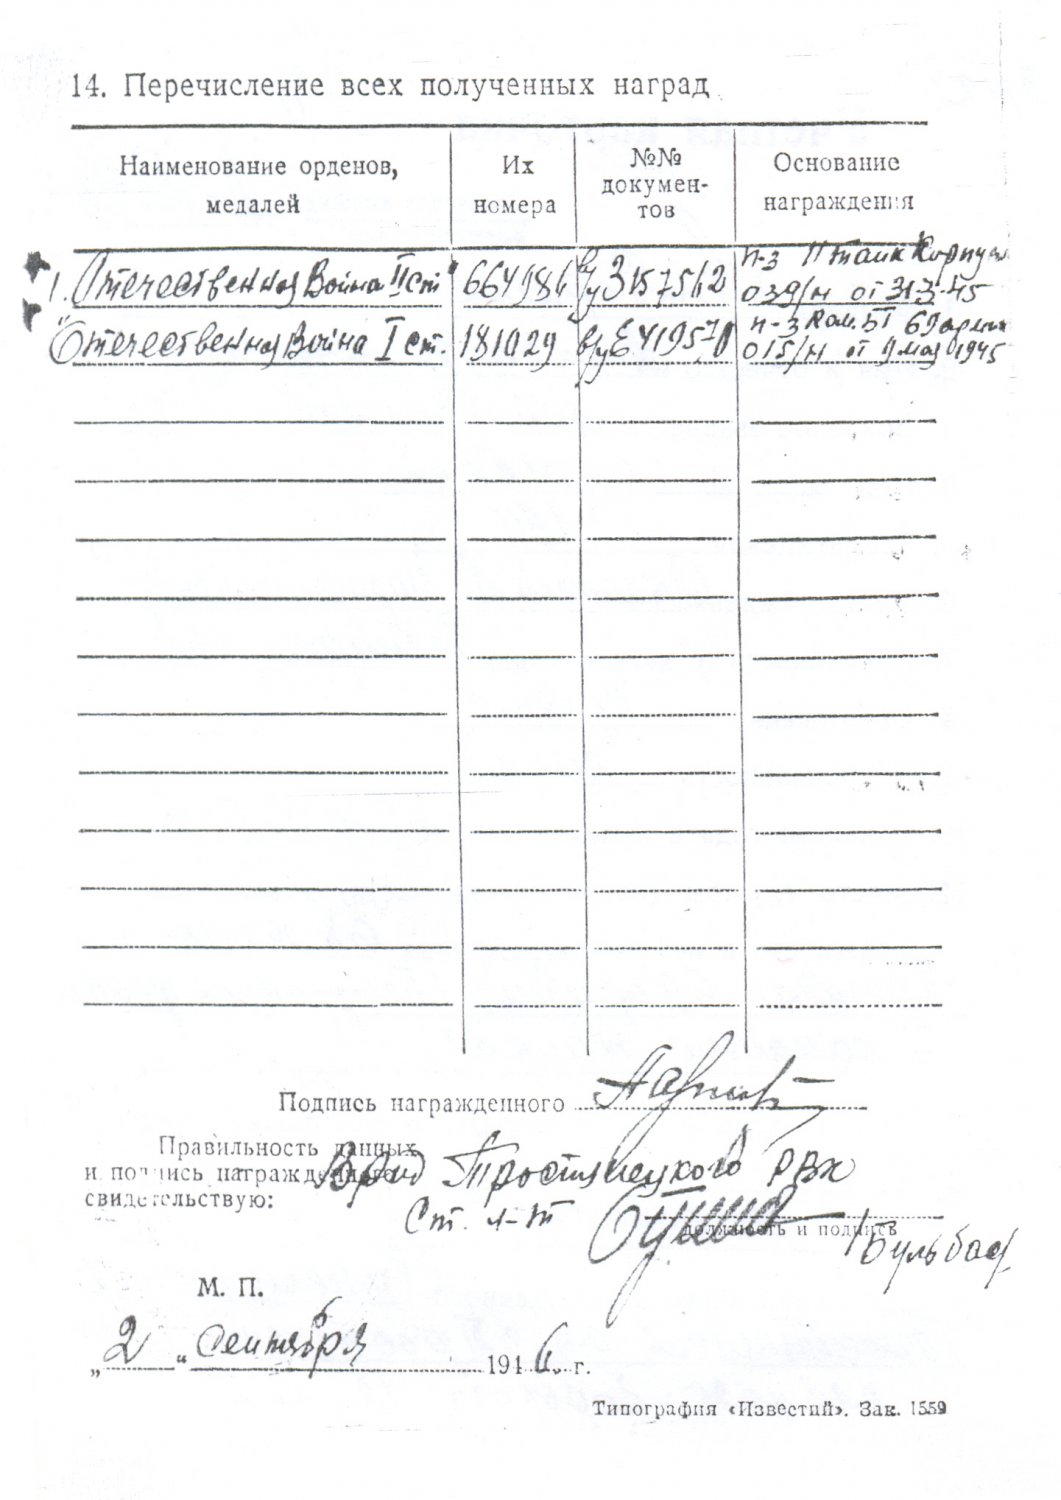 14. Перечисление всех полученных наград
Наименование орденов,
медалей
Их
номера
№№
докумен-
тов
Основание
награждения
1. Отечественная Война II ст 664984 в/у З 157562 п-з 11 танк Корпуса
039/н от 31-3-45
Отечественная Война I ст. 181029 в/у Е 419570 п-з Ком. БТ 69 армии
015/н от 9 мая 1945
Подпись награжденного
Правильность данных
и подпись награжденного
свидетельствую:
Врид Тростянецкого РВК
Ст. л-т
должность и подпись
/Бульба
М. П.
„2“ сентября 1946. г.
Типография «Известий». Зак. 1559